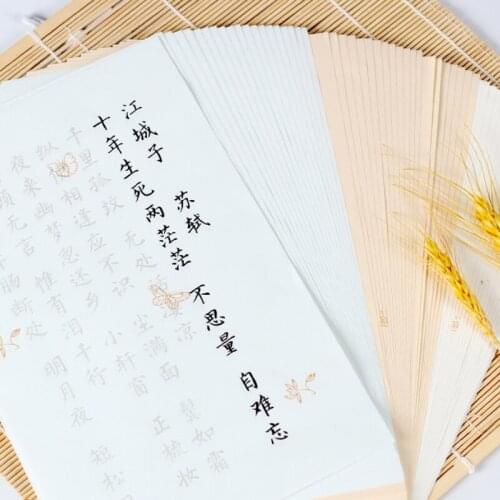 江城子 苏轼
十年生死两茫茫 不思量 自难忘
千里孤坟 无处凄凉
纵相逢应不识 尘满面 鬓如霜
夜来幽梦忽还乡 小轩窗 正梳妆
顾无言 惟有泪千行
肠断处 明月夜 短松